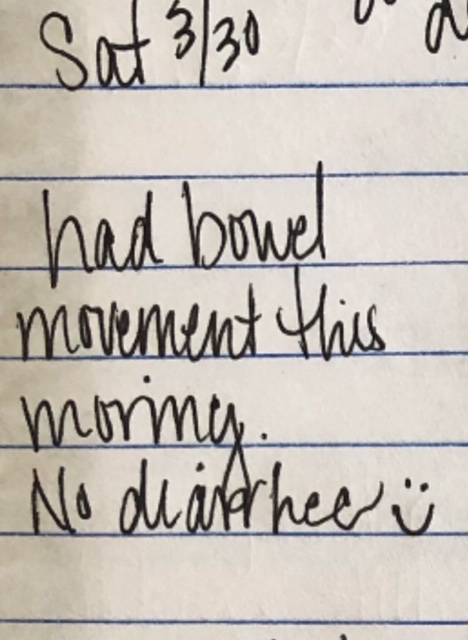 Sat 3/30
had bowel
movement this
morning.
No diarrhea ü